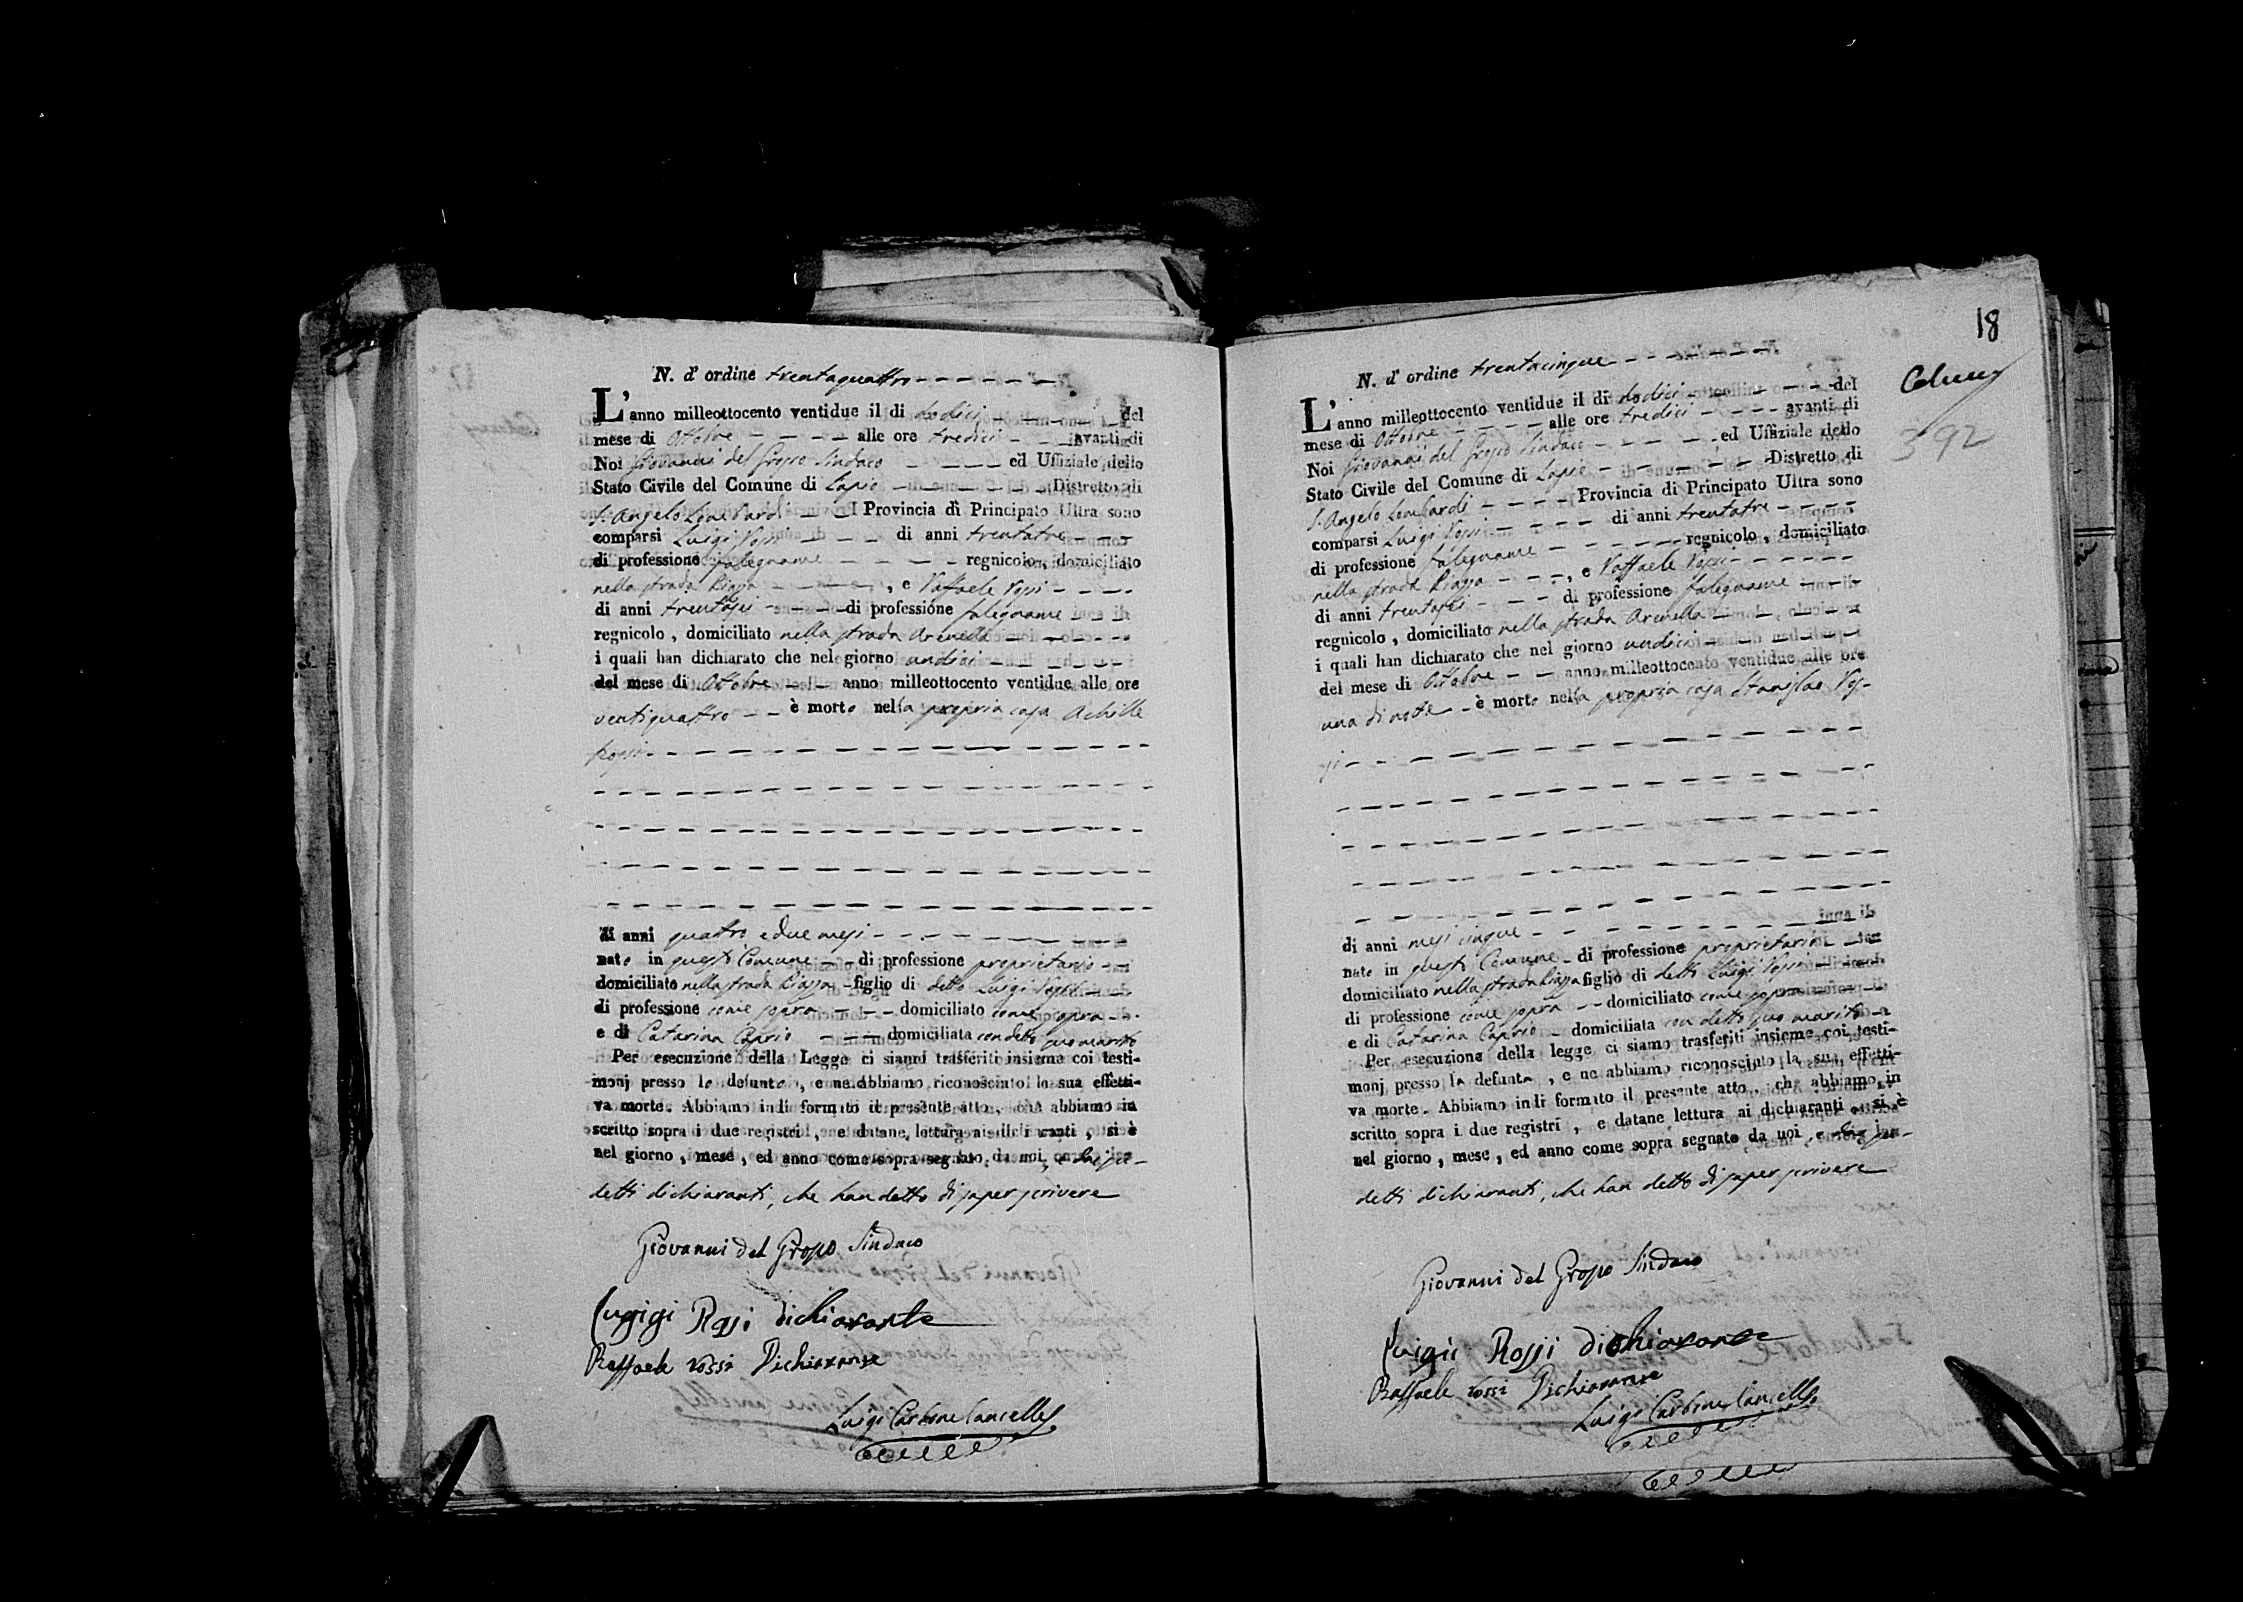 N. d' ordine trentaquattro
L' anno milleottocento ventidue il di dodici del
mese di Ottobre alle ore tredici avanti di
Noi Giovanni del Grosso Sindaco ed Uffiziale dello
Stato Civile del Comune di Lapio Distretto di
S. Angelo Lombardi Provincia di Principato Ultra sono
comparsi Luigi Rossi di anni trentatre
di professione falegname regnicolo, domiciliato
nella strada Piazza, e Raffaele Rossi
di anni trentasei di professione falegname
regnicolo, domiciliato nella strada Arenella
i quali han dichiarato che nel giorno undici
del mese di Ottobre anno milleottocento ventidue alle ore
ventiquattro è morto nella propria casa Achille
Rossi
di anni quattro e due mesi
nato in questo Comune di professione proprietario
domiciliato nella strada Piazza figlio di detto Luigi Rossi
di professione come sopra domiciliato come sopra
e di Catarina Caprio domiciliata con detto suo marito
Per esecuzione della Legge ci siamo trasferiti insieme coi testi-
monj presso lo defunto, e ne abbiamo riconosciuto la sua effetti-
va morte. Abbiamo indi formato il presente atto, che abbiamo in
scritto sopra i due registri, e datane lettura ai dichiaranti, si è
nel giorno, mese, ed anno come sopra segnato da noi, e dai su-
detti dichiaranti, che han detto di saper scrivere
Giovanni del Grosso Sindaco
Luigigi Rossi dichiarante
Raffaele rossi Dichiarante
Luigi Carbone Cancelle
18
N. d' ordine trentacinque
L' anno milleottocento ventidue il di dodici del
mese di Ottobre alle ore tredici avanti di
Noi Giovanni del Grosso Sindaco ed Uffiziale dello
392
Stato Civile del Comune di Lapio Distretto di
S. Angelo Lombardi Provincia di Principato Ultra sono
comparsi Luigi Rossi di anni trentatre
di professione falegname regnicolo, domiciliato
nella strada Piazza, e Raffaele Rossi
di anni trentasei di professione falegname
regnicolo, domiciliato nella strada Arenella
i quali han dichiarato che nel giorno undici
del mese di Ottobre anno milleottocento ventidue alle ore
una di notte è morto nella propria casa Stanislao Ros-
si
di anni mesi cinque
nato in questo Comune di professione proprietario
domiciliato nella strada Piazza figlio di detto Luigi Rossi
di professione come sopra domiciliato come sopra
e di Catarina Caprio domiciliata con detto suo marito
Per esecuzione della legge ci siamo trasferiti insieme coi testi-
monj presso la defunta, e ne abbiamo riconosciuto la sua effetti-
va morte. Abbiamo indi formato il presente atto, che abbiamo in
scritto sopra i due registri, e datane lettura ai dichiaranti, si è
nel giorno, mese, ed anno come sopra segnato da noi, e dai su-
detti dichiaranti, che han detto di saper scrivere
Giovanni del Grosso Sindaco
Luigii Rossi dichiarante
Raffaele rossi Dichiarante
Luigi Carbone Cancelle